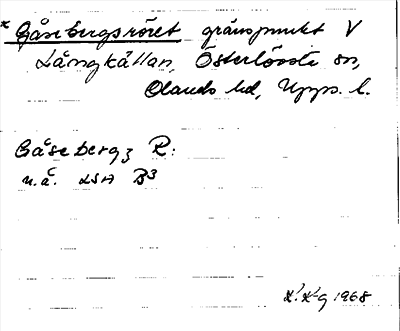 * Gåsebergsröret gränspunkt V
Långkällan, Österlövsta sn,
Olands hd, Upps. l.
Gåseberg z R:
n.å. LSA B3
1968